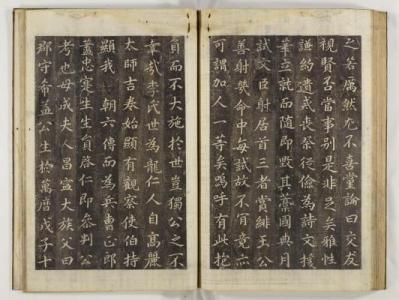 之若厲然尤不喜黨論曰交友
視賢否當事別是非足矣雅性
謙約遺戒喪葬從儉為詩文援
筆立就而隨即毀其藁國典月
試文臣射居首三者賞緋王公
善射發命中每試故不肯竟亦
可謂加人一等矣嗚呼有此抱
負而不大施於世豈獨公之不
幸哉李氏世為龍仁人自高麗
太師吉卷始顯有觀察使伯持
顯我朝六傳而為兵曹正郎
蓋忠寔生生員啓仁即叅判公
考也母成夫人昌寧大族父曰
郡守希益公生於萬曆戊子十